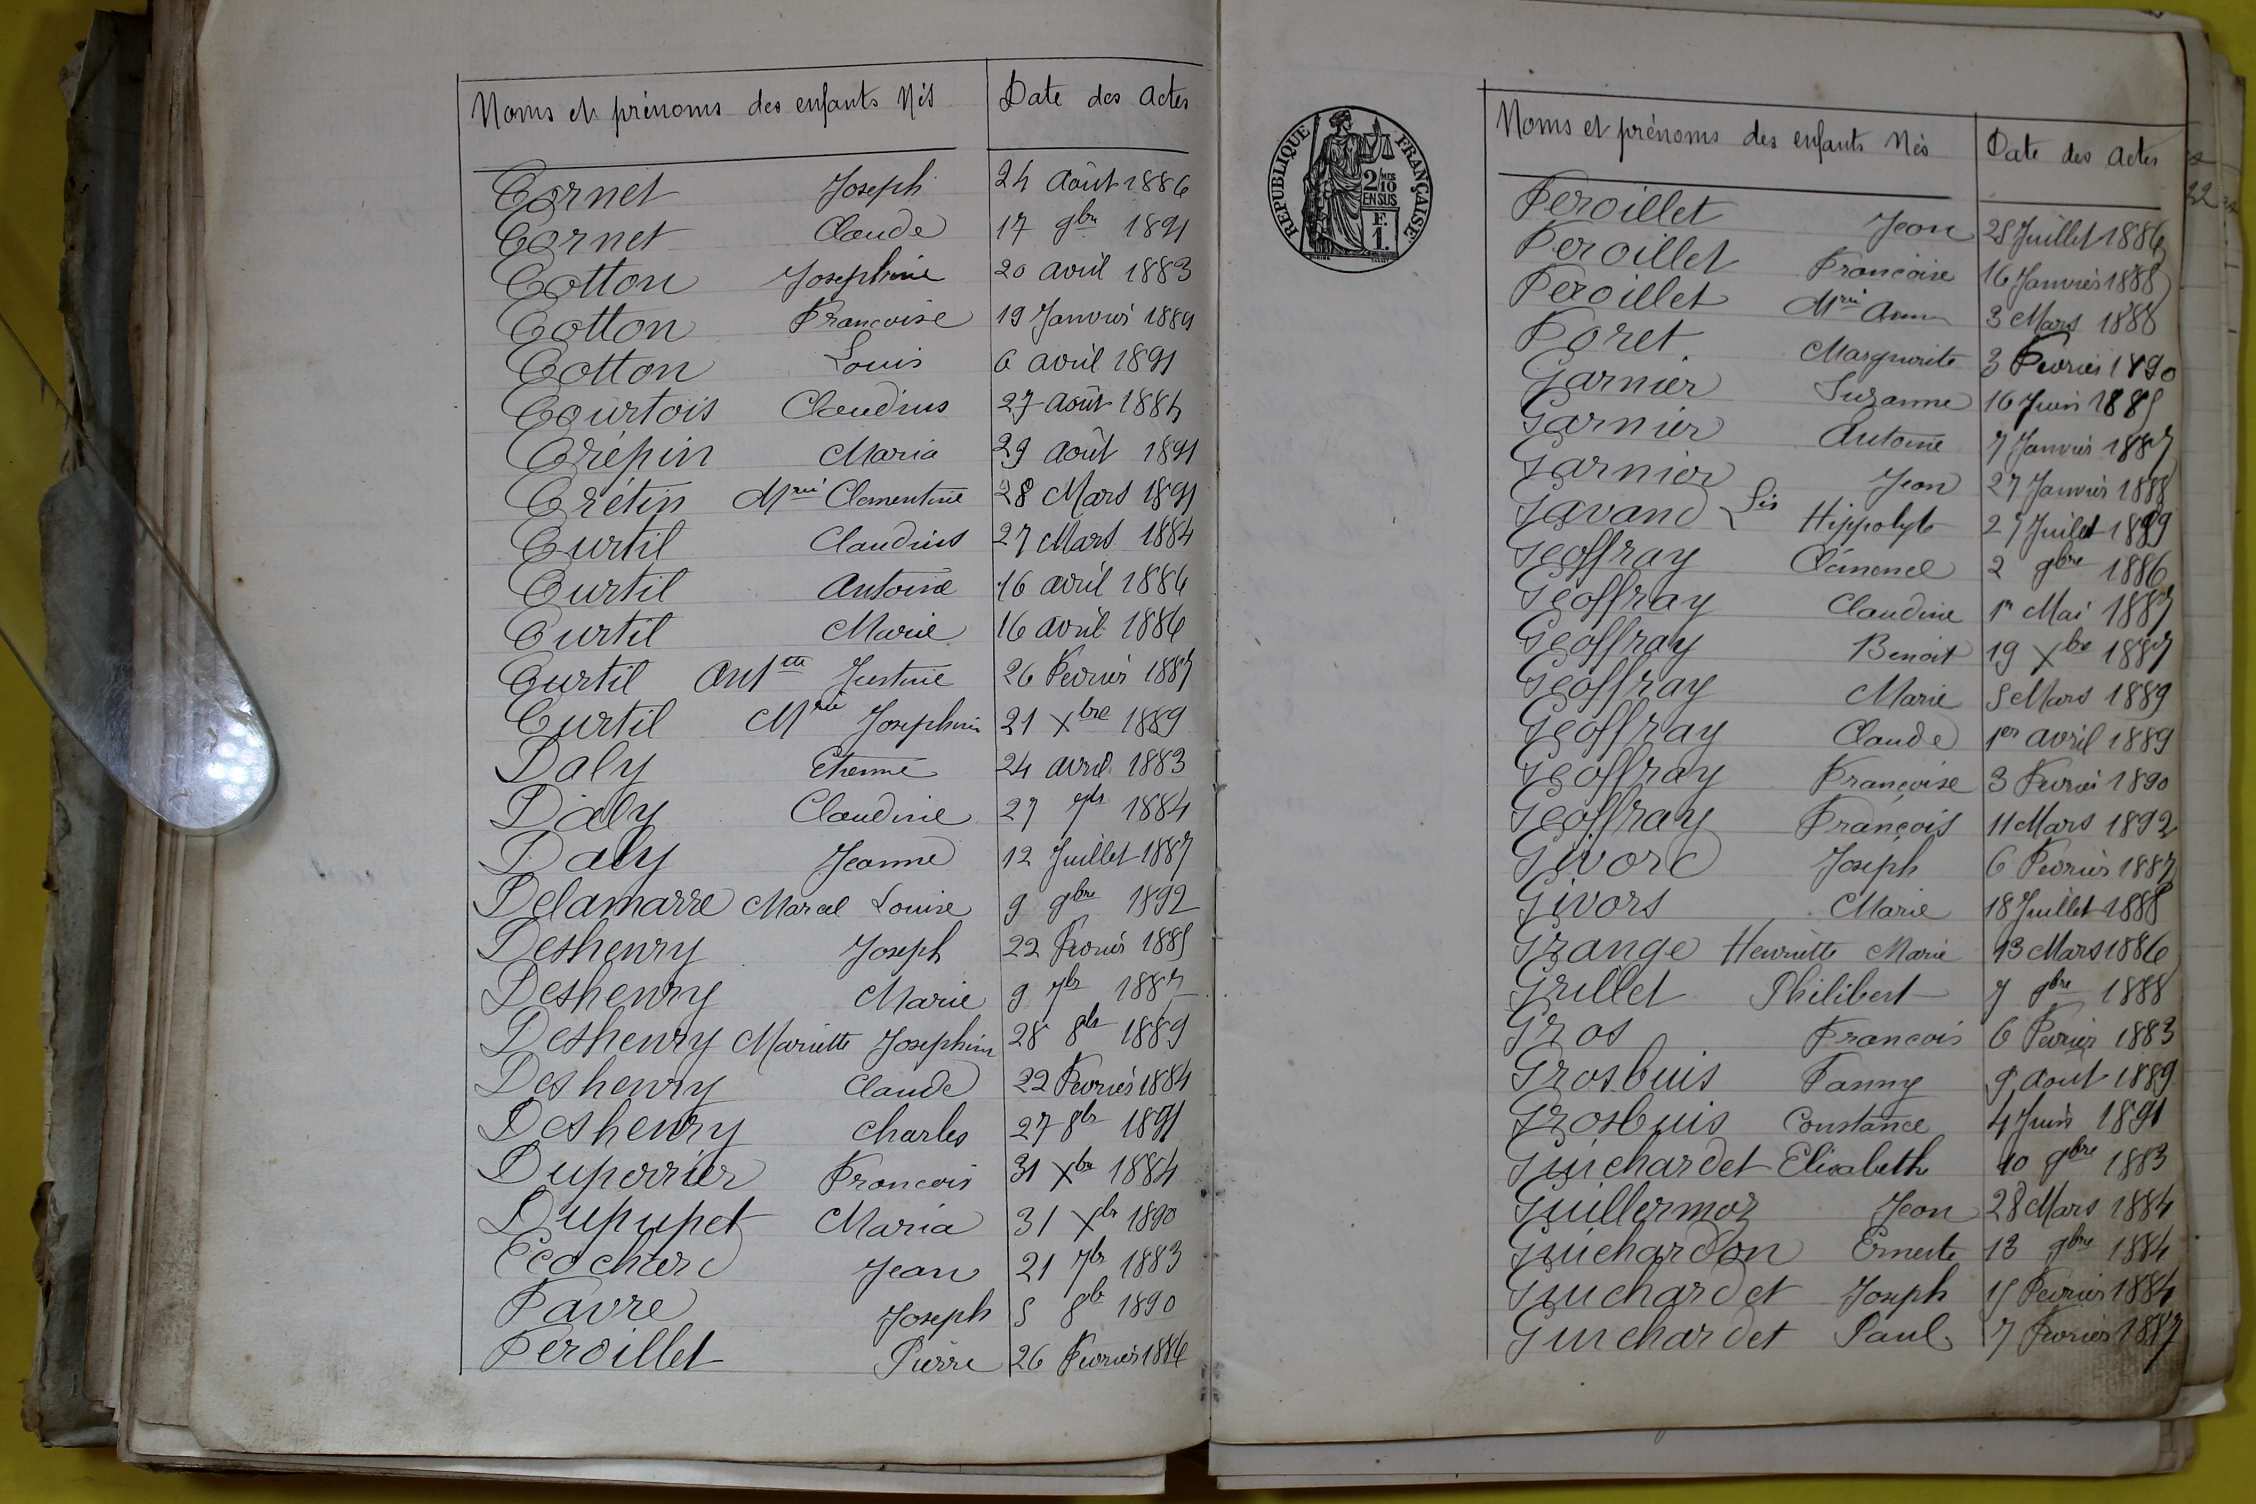 Noms et prénoms des enfants Nés Date des actes
Cornet Joseph 24 Août 1886
Cornet Claude 17 9bre 1891
Cotton Josephine 20 avril 1883
Cotton Francoise 19 Janvier 1889
Cotton Louis 6 avril 1891
Courtois Claudius 27 août 1884
Crépin Maria 29 août 1891
Crétin Mrie Clementine 28 Mars 1891
Curtil Claudius 27 Mars 1884
Curtil Antoine 16 avril 1886
Curtil Marie 16 avril 1886
Curtil Antette Justine 26 Fevrier 1887
Curtil Mrie Josephine 21 Xbre 1889
Daly Etienne 24 avril 1883
Daly Claudine 27 7br 1884
Daly Jeanne 12 Juillet 1887
Delamarre Marcel Louise 9 9bre 1892
Deshenry Joseph 22 Fevrier 1885
Deshenry Marie 9 7br 1887
Deshenry Mariette Josephine 28 8br 1889
Deshenry Claude 22 Fevrier 1884
Deshenry Charles 27 8br 1891
Duperrier Francois 31 Xbre 1884
Dupupet Maria 31 Xbr 1890
Ecochard Jean 21 7br 1883
Favre Joseph 5 8br 1890
Feroillet Pierre 26 Fevrier 1886
REPUBLIQUE FRANÇAISE
2/10
EN SUS
F.
1.
Noms et prénoms des enfants Nés Date des actes
Feroillet Jean 28 Juillet 1886
Feroillet Francoise 16 Janvier 1888
Feroillet Mrie Anna 3 Mars 1888
Foret Marguerite 3 Fevrier 1890
Garnier Suzanne 16 Juin 1885
Garnier Antoine 7 Janvier 1887
Garnier Jean 27 Janvier 1888
Gavand Lis Hippolyte 27 Juillet 1889
Geoffray 2 9bre 1886
Geoffray Claudine 1er Mai 1887
Geoffray Benoit 19 Xbre 1887
Geoffray Marie 5 Mars 1889
Geoffray Claude 1er avril 1889
Geoffray Françoise 3 Fevrier 1890
Geoffray François 11 Mars 1892
Givord Joseph 6 Fevrier 1887
Givors Marie 18 Juillet 1888
Grange Henriette Marie 13 Mars 1886
Grillet Philibert 7 9bre 1888
Gros Francois 6 Fevrier 1883
Grosbuis Fanny 9 Aout 1889
Grosbuis Constance 4 Juin 1891
Guichardet Elisabeth 10 9bre 1883
Guillermoz Jean 28 Mars 1884
Guichardon Erneste 13 9bre 1884
Guichardet Joseph 15 Fevrier 1884
Guichardet Paul 7 Fevrier 1887